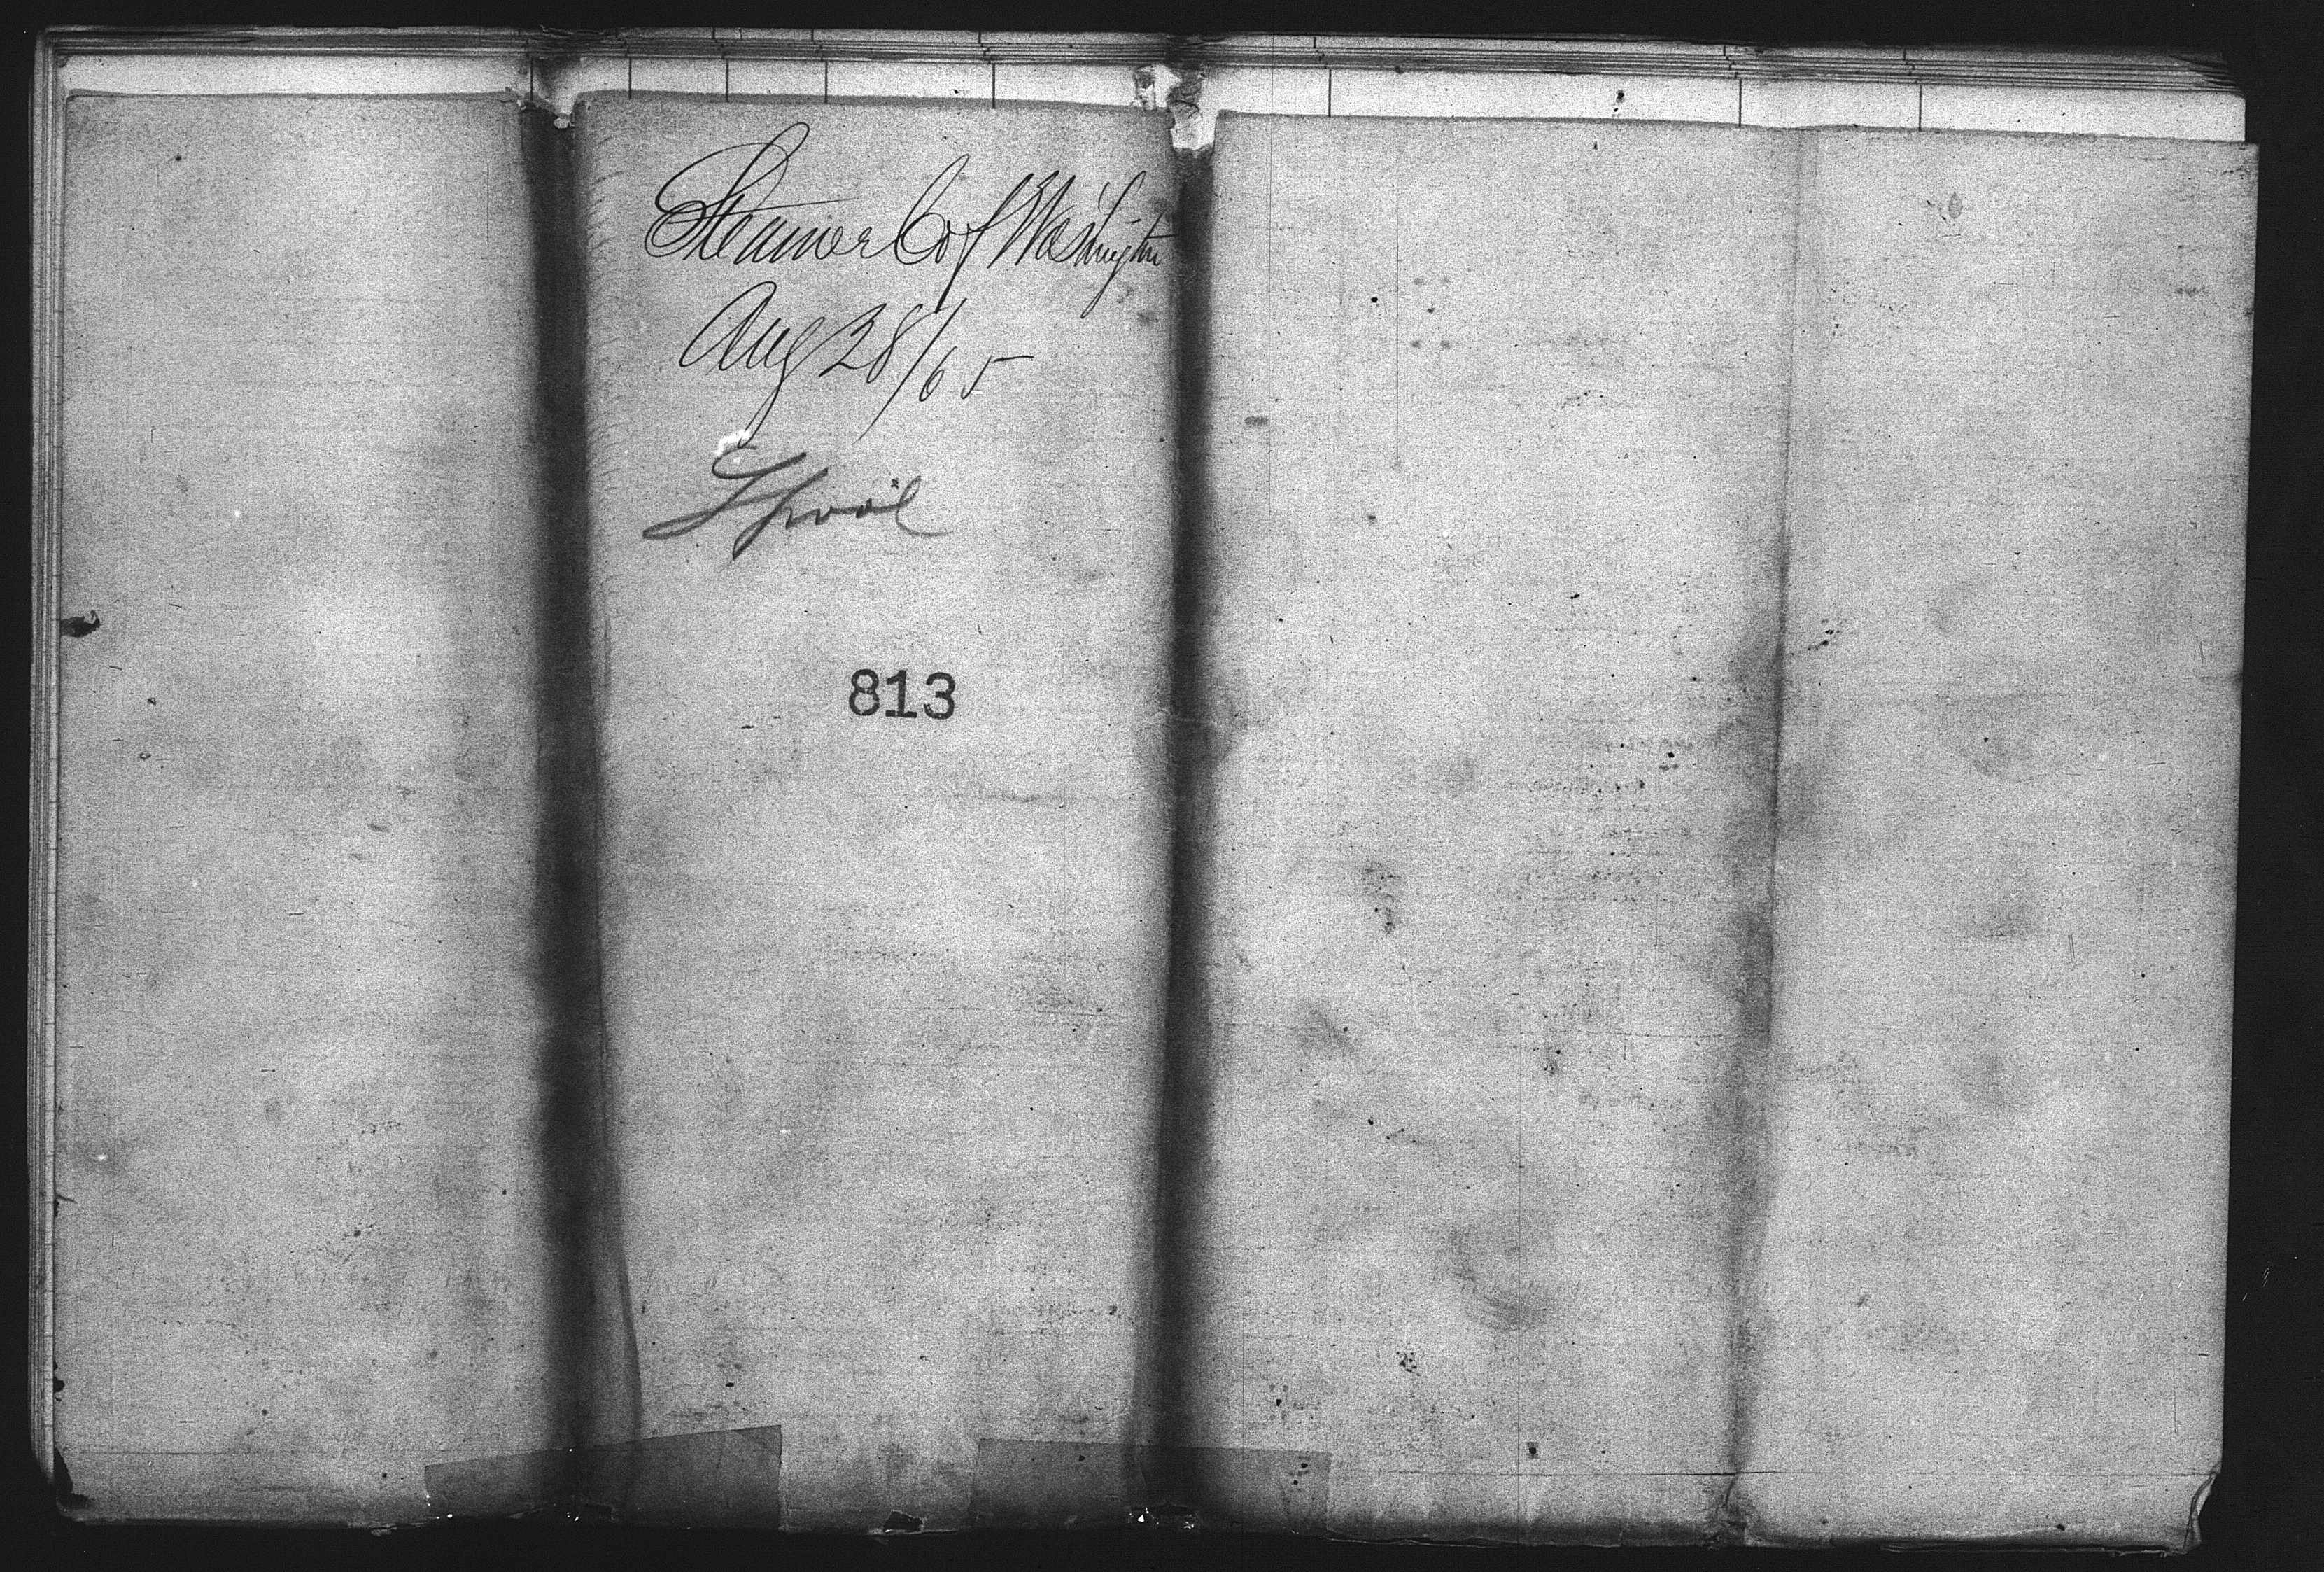 Steamer C of Washington
Aug 28/65
Lpool
813